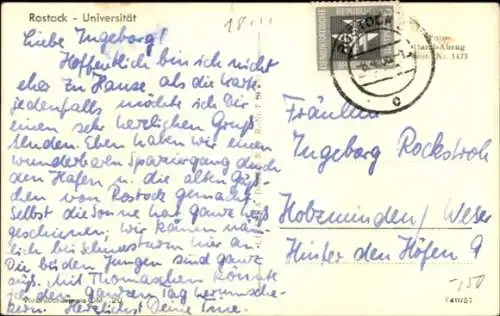 Rostock - Universität
Liebe Ingeborg!
Hoffentlich bin ich nicht
eher zu Hause als die Karte
jedenfalls möchte ich Dir
einen sehr herzlichen Gruß
senden. Eben haben wir einen
wunderbaren Spaziergang durch
den Hafen u. die alten Gäß-
chen von Rostock gemacht.
Selbst die Sonne hat ganz weiß
geschienen; Wir kamen näm-
lich bei Schneesturm hier an.
Die beiden Jungen sind ganz
süß. Mit Thomaschen könnte
ich den ganzen Tag herumsche-
kern. Herzlichst Deine
18
DEUTSCHE DEMOKRATISCHE REPUBLIK
c
Echt Photo
Handabzug
Best.-Nr. 1423
Fräulein
Ingeborg Rockstroh
Holzminden/Weser
Hinter den Höfen 9
-,50